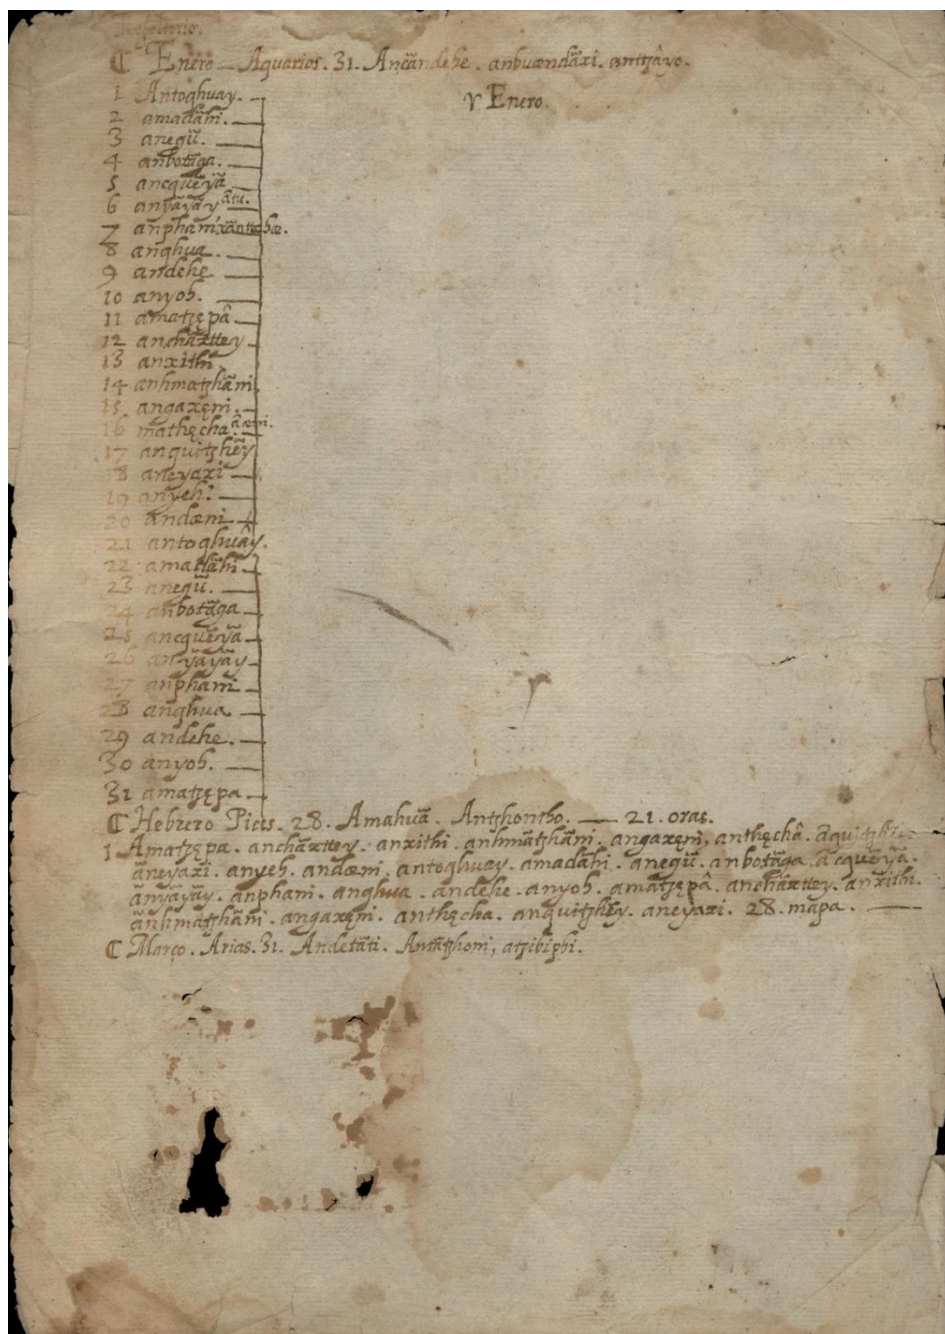 Repertorio.
☾ Enero — Aquarios. 31. Ancãndehe. anbuændãxi. antzâyo.
1 Antoqhuay.
v Enero.
2 amadãhi.
3 aneqũ.
4 anbotãga.
5 ancquẽỹã
6 anỹãỹãy ãtu.
7 anphani xãnttohœ.
8 anqhua.
9 andehe
10 anyoh.
11 amatzȩpâ
12 anchãxttey
13 anxithi
14 anhmatzhãni
15 angaxȩni.
16 mathȩcha
17 anquitzhẽy
18 aneyaxi
19 anyeh.
20 andœni
21 antoqhuây.
22 amadãhi
23 aneqũ.
24 anbotãga
25 ancquẽỹã
26 anỹãỹãy
27 anphani
28 anqhua
29 andehe.
30 anyoh.
31 amatzȩpa
☾ Hebrero Picis. 28. Amahuã. Antzhontho. — 21. oras.
1 Amatzȩpa. anchãxttey. anxithi. anhmãtzhãni. angaxȩni, anthȩchâ.
aneyaxi. anyeh. andœni. antoqhuay. amadãhi. aneqũ. anbotãga. acquẽỹã.
anỹãỹãy. anphani. anqhua. andehe. anyoh. amatzȩpâ. anchâxttey. anxithi.
anhmatzhãni. angaxȩni. anthȩcha. anquitzhẽy. aneyaxi. 28. mapa. —
☾ Março. Arias. 31. Andetãti. Antãtzhoni, atzibiphi.